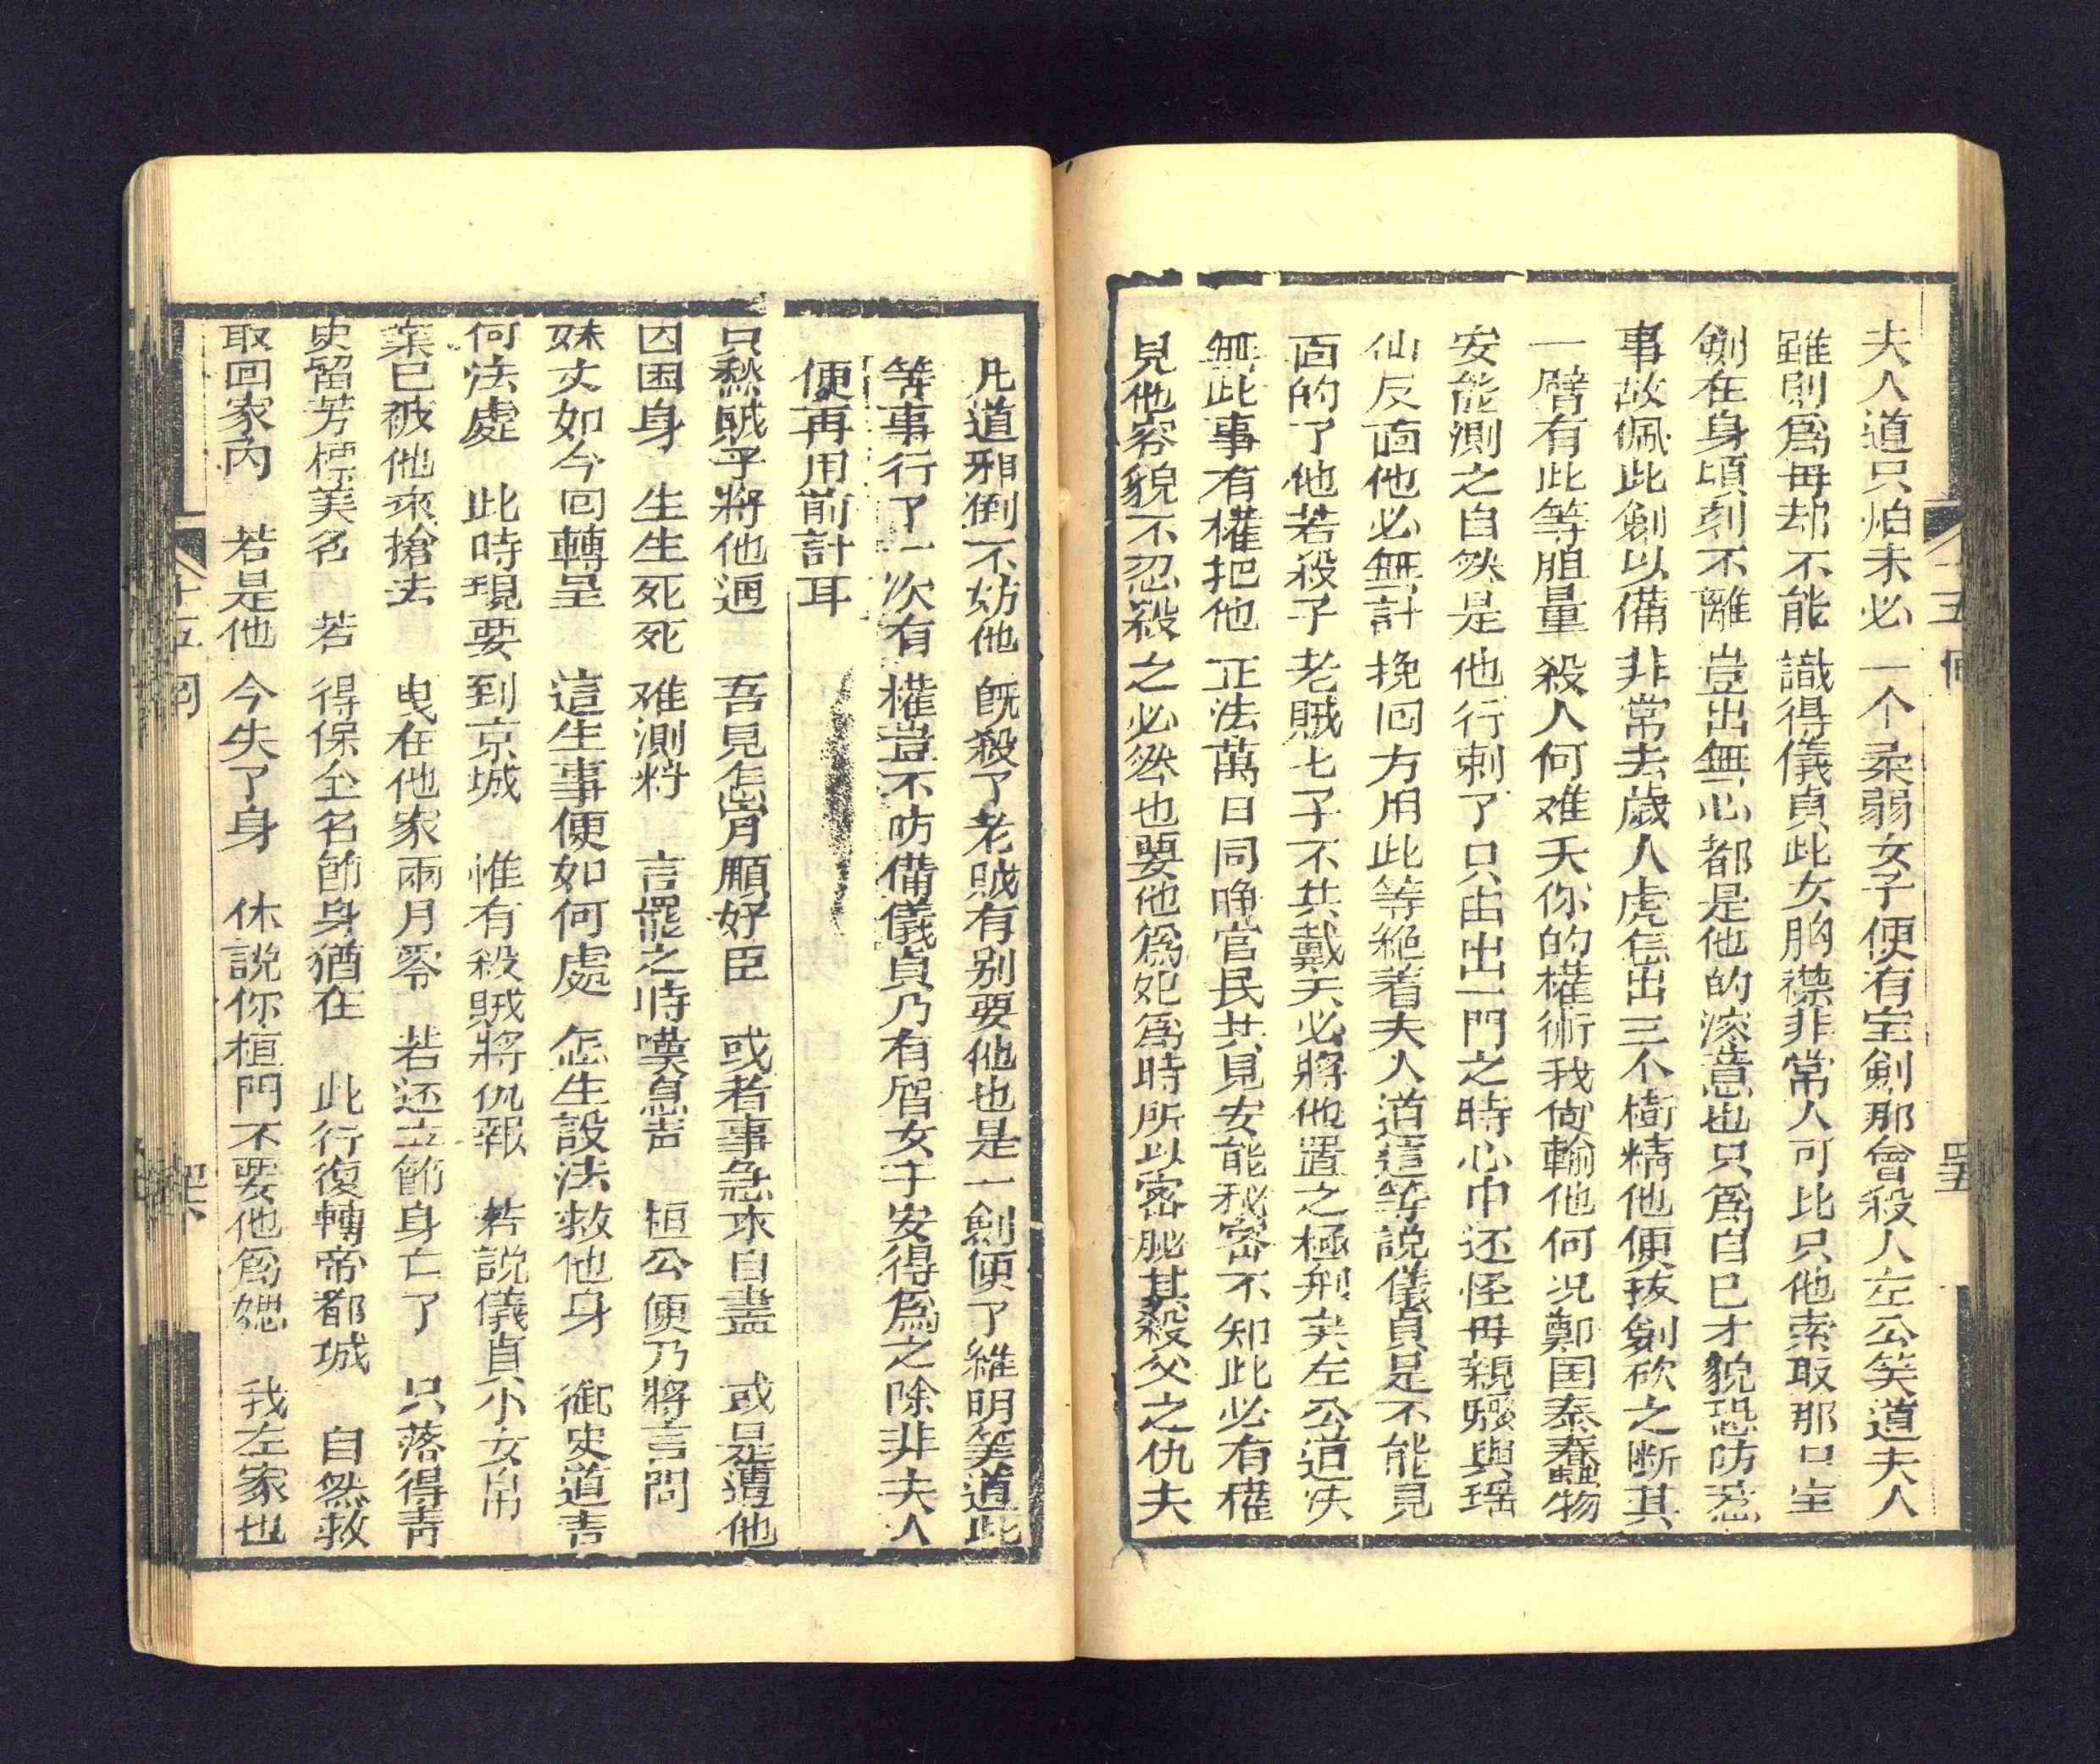 夫人道只怕未必一个柔弱女子便有宝劍那會殺人左公笑道夫人
雖則爲母却不能識得儀貞此女胸襟非常人可比只他索取那口宝
劍在身頃刻不離豈出無心都是他的深意也只爲自己才貌恐防惹
事故佩此劍以備非常去歲人虎怎出三不樹精他便拔劍砍之断其
一臂有此等胆量殺人何难夭你的權術我尙輸他何况鄭国泰蠢物
安能測之自然是他行刺了只由出一門之時心中还怪母親賺與瑶
仙反面他必無計挽回方用此等絕着夫人道這等說儀貞是不能見
面的了他若殺子老賊七子不共戴天必將他置之極刑矣左公道决
無此事有權把他正法萬日同睁官民共見安能秘密不知此必有權
見他容貌不忍殺之必然也要他爲妃爲時所以密肶其殺父之仇夫
十五囘
凡道邪倒不妨他旣殺了老賊有别要他也是一劍便了維明笑道此
等事行了一次有權豈不防備儀貞乃有屑女于安得爲之除非夫人
便再用前計耳
只愁賊子將他逼 吾見怎肯順奸臣 或者事急求自盡 或是遭他
因困身 生生死死难測料 言罷之時嘆息声 桓公便乃將言問
妹丈如今回轉呈 這生事便如何處 怎生設法救他身 御史道言
何法處 此時現要到京城 惟有殺賊將仇報 若說儀貞小女吊
業已被他來搶去 曳在他家兩月零 若还立節身亡了 只落得靑
史留芳標美名 若得保全名節身猶在 此行復轉帝都城 自然救
取回家內 若是他今失了身 休說你桓門不要他爲媳 我左家也
十五囘